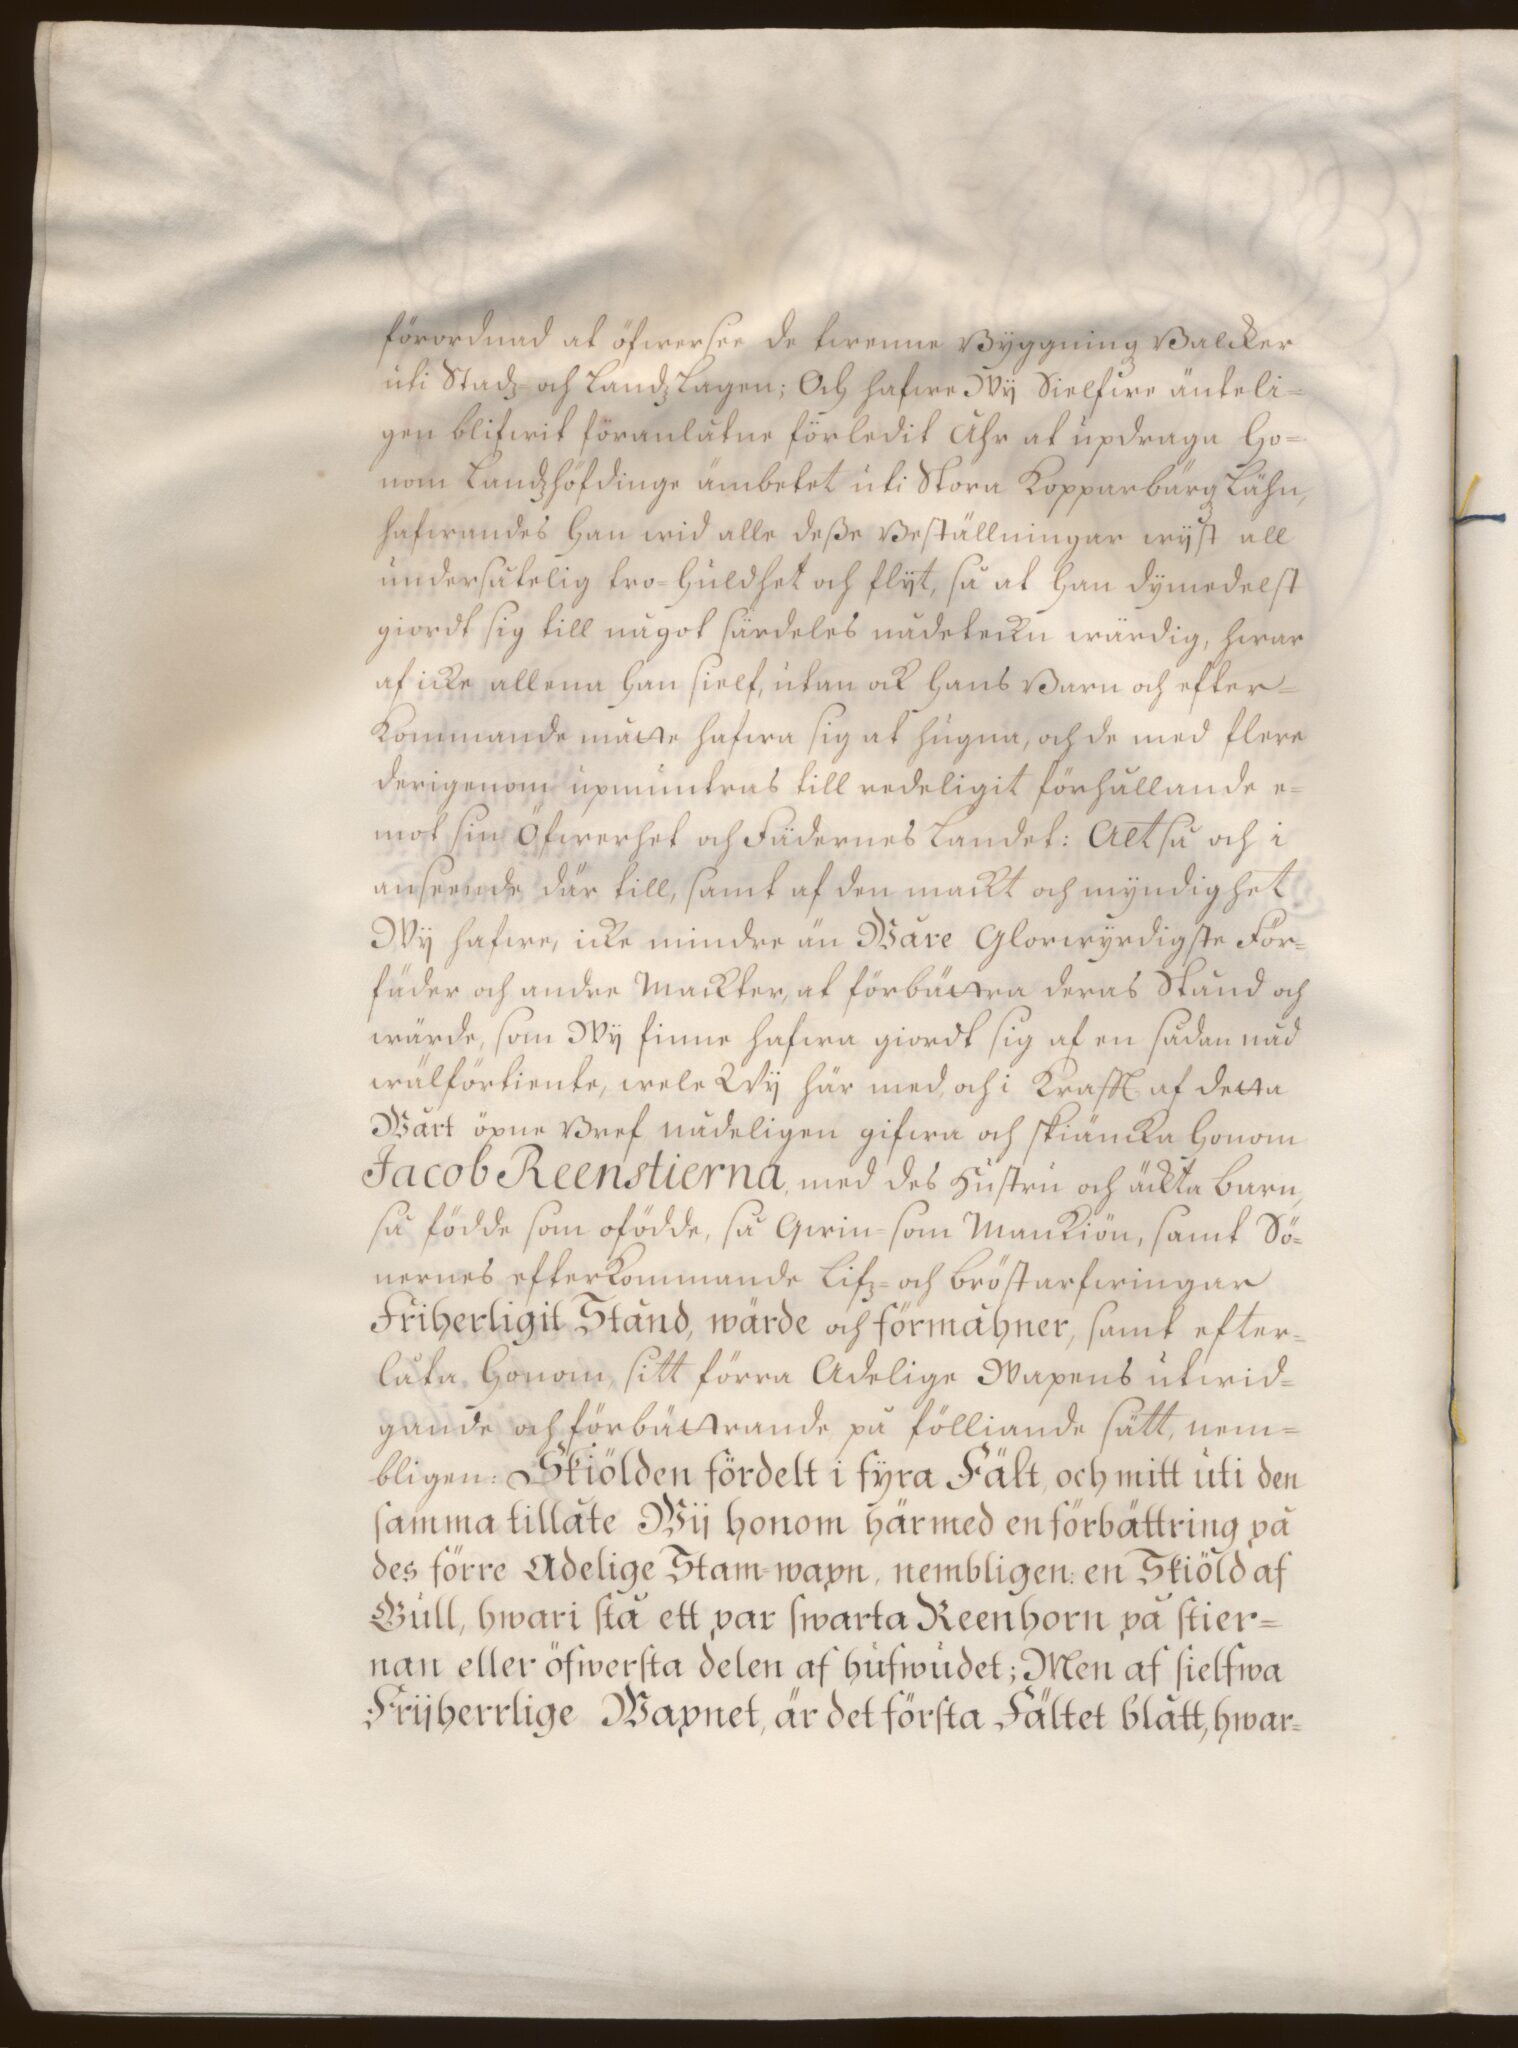 förordnad at öfwersee de twenne Byggning Balcker
uti Stadz- och Landz Lagen; Och hafwe Wij Sielfwe änteli=
gen blifwit föranlåtne förledit Åhr at updraga Ho=
nom Landzhöfdinge ämbetet uti Stora Kopparbärgz Lähn,
hafwandes Han wid alle deße Beställningar wijst all
undersåtelig tro=Huldhet och flijt, så at Han dymedelst
giordt sig till något särdeles nådetecken wärdig, hwar
af icke allena Han sielf, utan ock Hans Barn och efter=
kommande måtte hafwa sig at hugna, och de med flere
derigenom upmuntras till redeligit förhållande e=
mot sin Öfwerhet och Fädernes Landet: Altså och i
anseende där till, samt af den mackt och myndighet
Wij hafwe, icke mindre än Wåre Glorwyrdigste För=
fäder och andre Mackter, at förbättra deras Stånd och
wärde, som Wij finne hafwa giordt sig af en sådan nåd
wälförtiente, wele Wij här med, och i Krafft af detta
Wårt öpne Bref nådeligen gifwa och skiäncka Honom
Jacob Reenstierna, med des Hustru och äckta Barn,
så födde som ofödde, så Qwin=som Mankiön, samt Sö=
nernes efterkommande Lifz- och Bröstarfwingar
Friherligit Stånd, wärde och förmåhner, samt efter=
låta Honom sitt förra Adelige Wapens utwid=
gande och förbättrande på fölliande sätt, nem=
bligen: Skiölden fördelt i fyra Fält, och mitt uti den
samma tillåte Wij honom härmed en förbättring på
des förre Adelige Stam=wapn, nembligen: en Skiöld af
Gull, hwari stå ett par swarta Reenhorn på stier=
nan eller öfwersta delen af hufwudet; Men af sielfwa
Frijherrlige Wapnet, är det första Fältet blått, hwar=